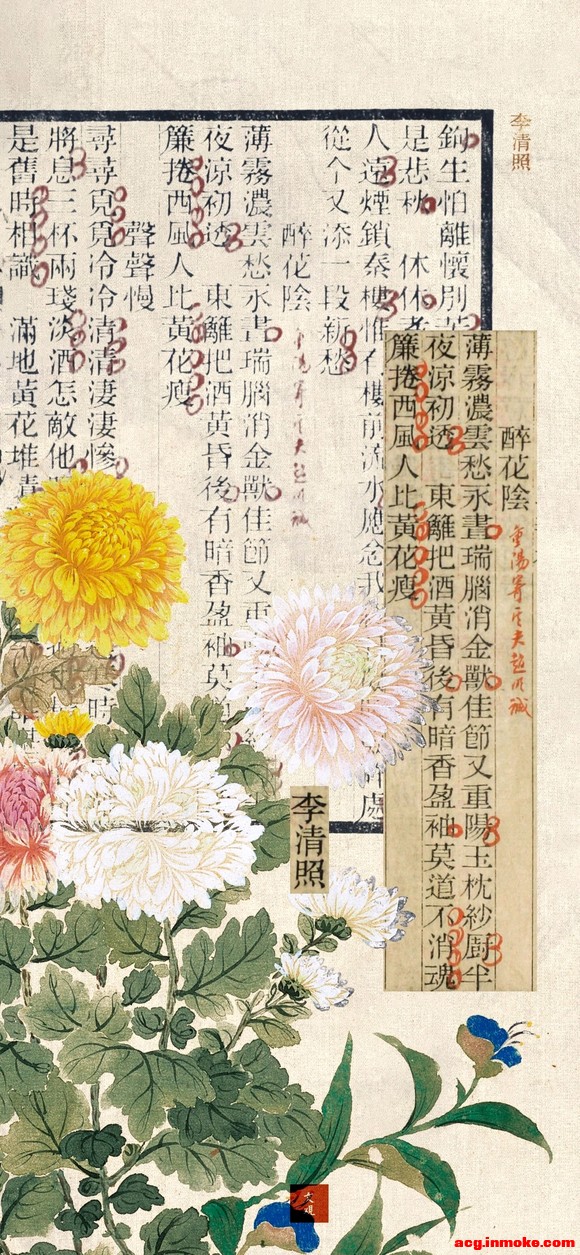 李清照
鉤生怕離懷別
是悲秋 休休者
人遠煙鎖秦樓惟有樓前流水應念我 處
從今又添一段新愁
醉花陰 重陽寄 夫趙明誠
薄霧濃雲愁永晝瑞腦消金獸佳節又重
夜涼初透 東籬把酒黃昏後有暗香盈袖莫道
簾捲西風人比黃花瘦
聲聲慢
尋尋覓覓冷冷清清淒淒慘 時
將息三杯兩盞淡酒怎敵他
是舊時相識 滿地黃花堆積
醉花陰 重陽寄 夫趙明誠
薄霧濃雲愁永晝瑞腦消金獸佳節又重陽玉枕紗廚半
夜涼初透 東籬把酒黃昏後有暗香盈袖莫道不消魂
簾捲西風人比黃花瘦
李清照
acg.inmoke.com